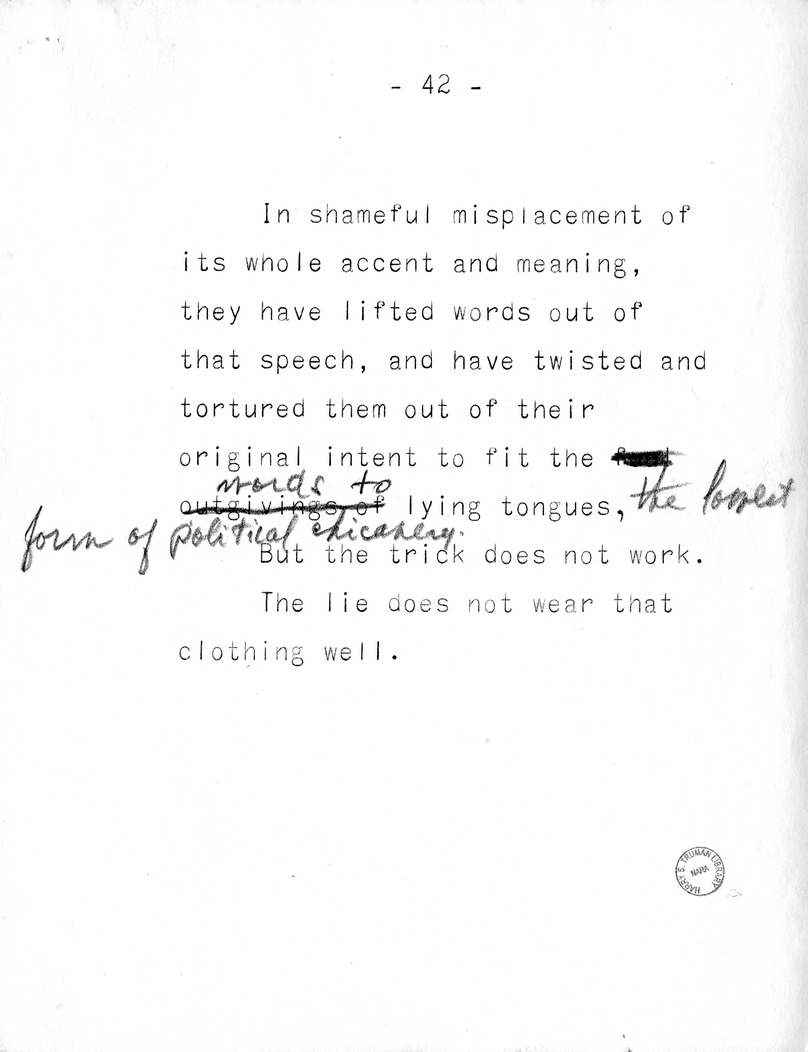 - 42 -
In shameful misplacement of
its whole accent and meaning,
they have lifted words out of
that speech, and have twisted and
tortured them out of their
original intent to fit the
words to
outgivings of lying tongues, the lowest
form of political chicanery.
But the trick does not work.
The lie does not wear that
clothing well.
HARRY S. TRUMAN LIBRARY
NARA